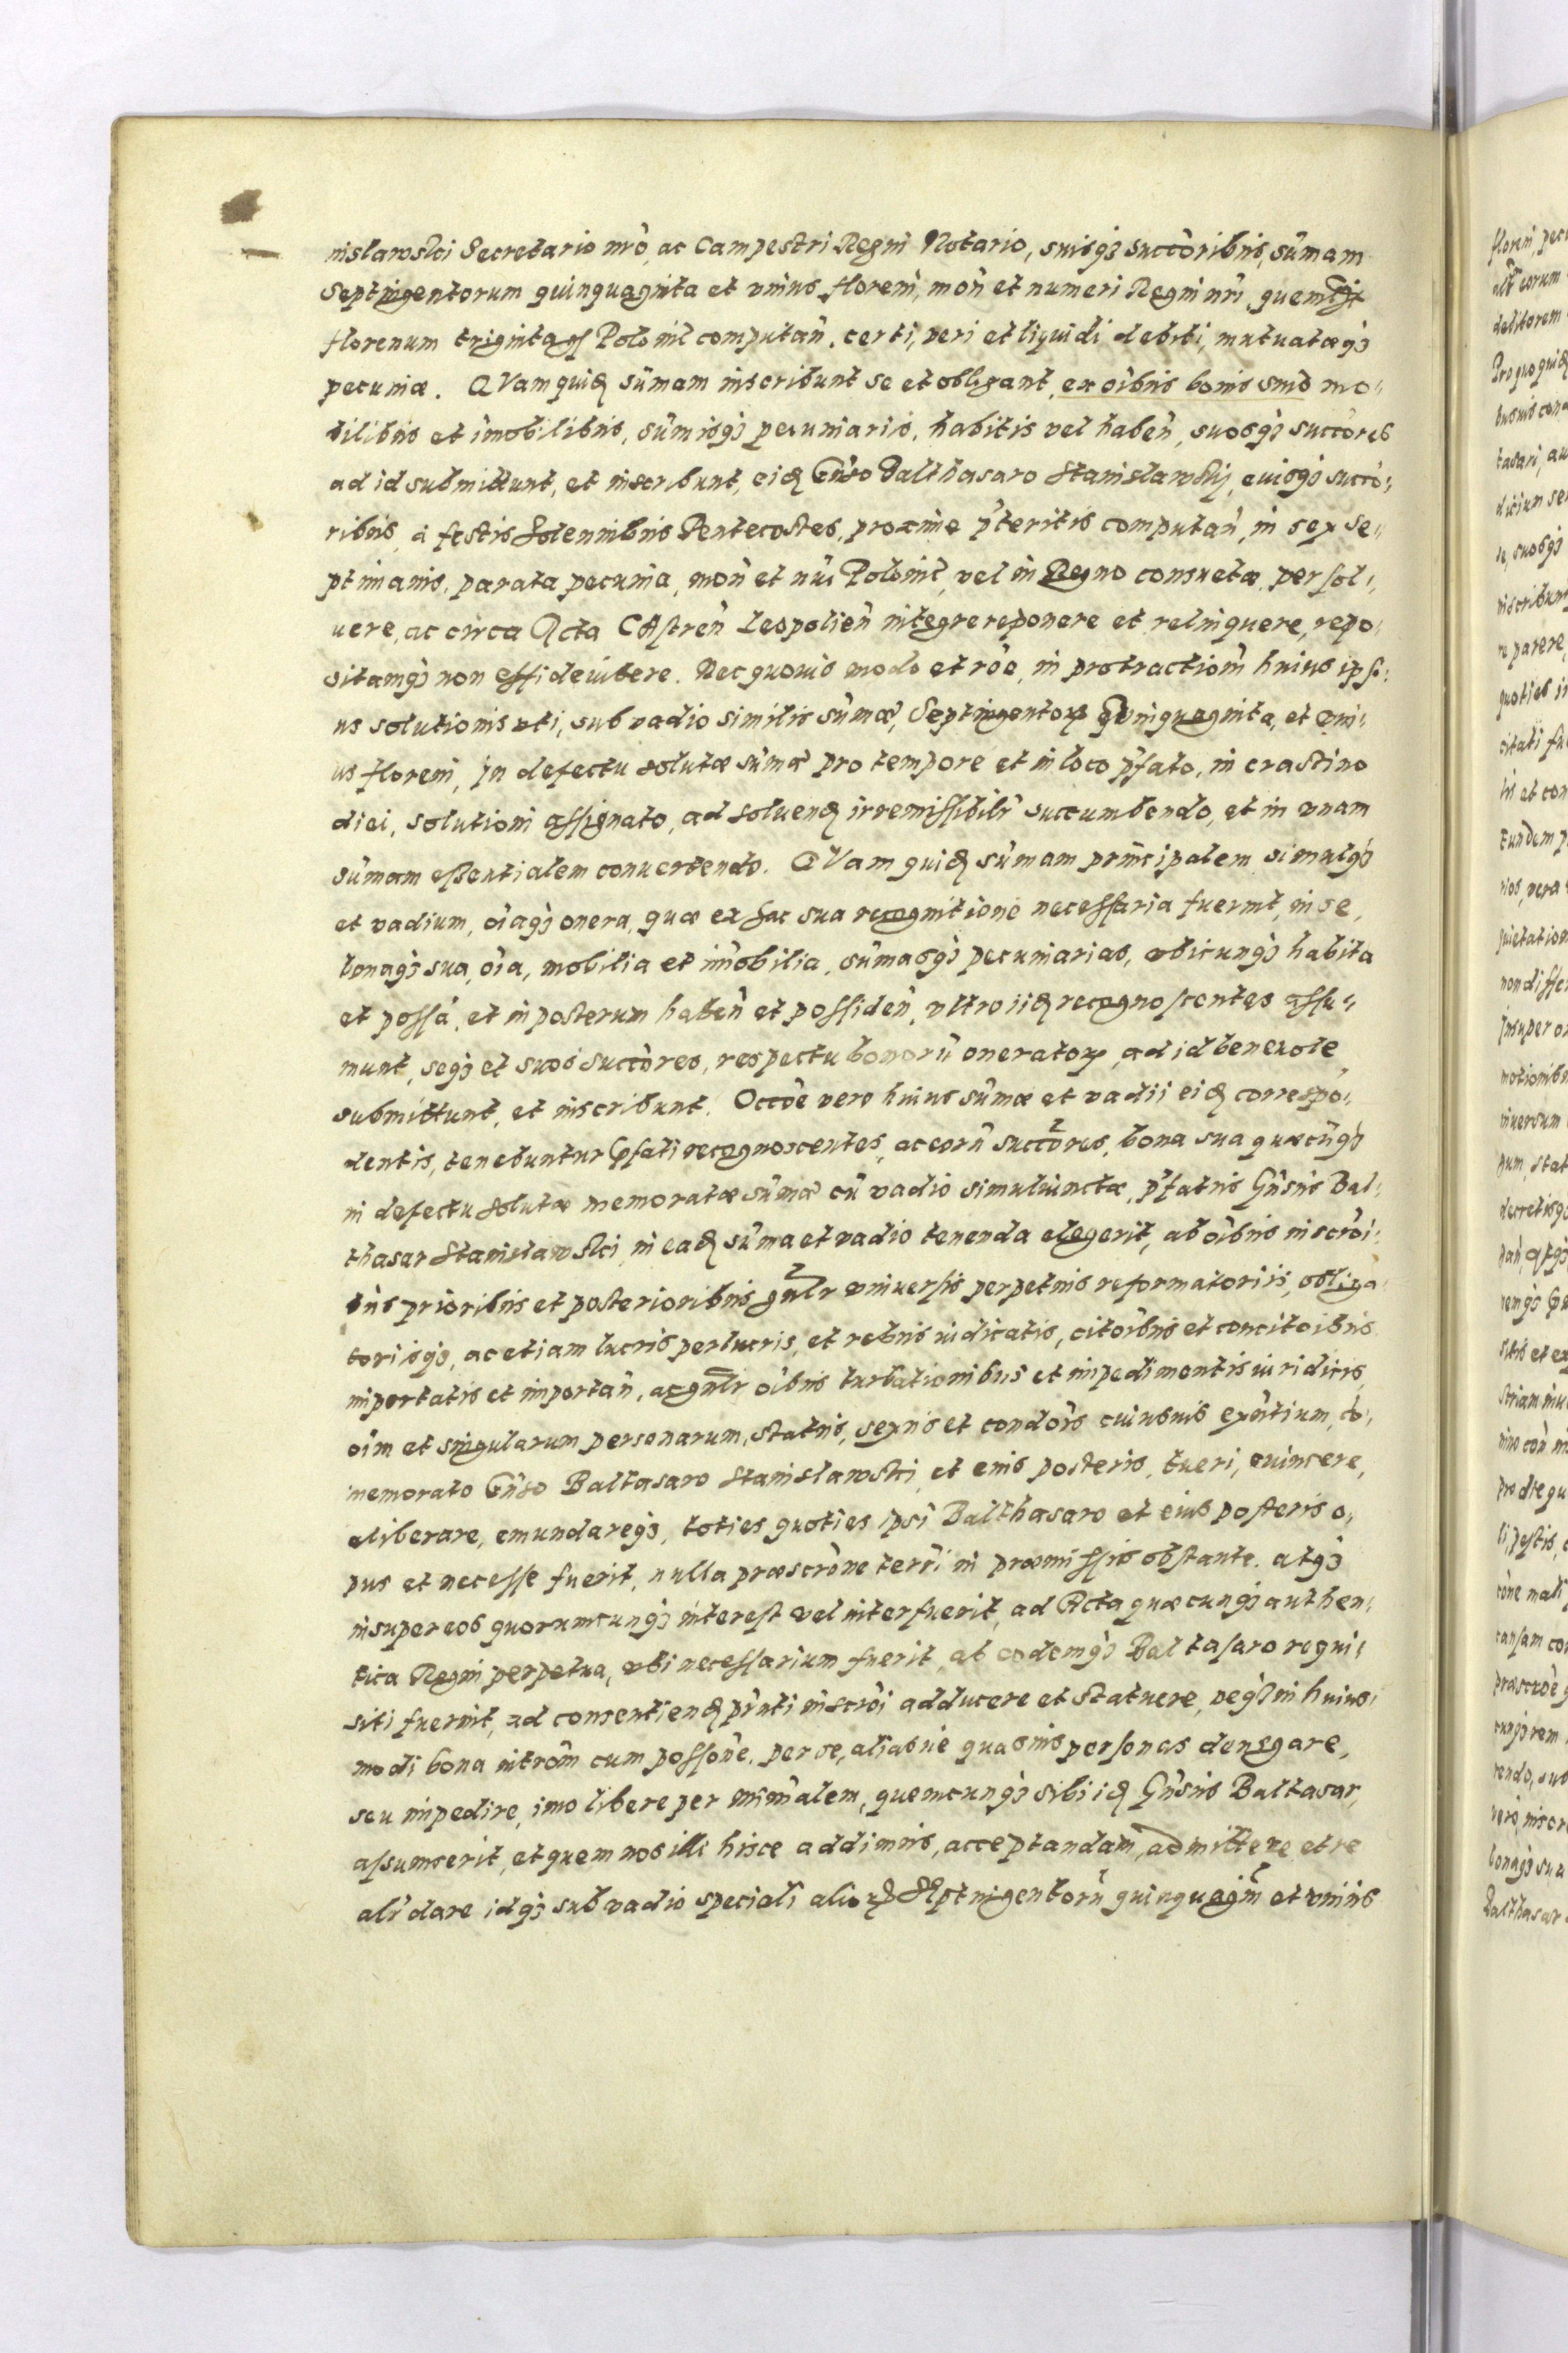 nislawski Secretario nr̃o, ac Campestri Regni Notario, suisq₃ succ̃oribus, sum̃am
Septingentorum quinquaginta et vnius floreni, moñ et numeri Regni nr̃i, quemlib̃t
florenum triginta gs̃ Polonil̃ computañ, certi, veri et liquidi debiti, mutuatæq₃
pecuniæ. QVam quid̃ sum̃am inscribunt se et obligant, ex oĩbus bonis suis mo-
bilibus et im̃obilibus, sum̃isq₃ pecuniariis, habitis vel habeñ, suosq₃ succ̃ores
ad id submittunt, et inscribunt, eid̃ Gñso Balthasaro Stanislawskj, euisq₃ succ̃o-
ribus, a festis Solennibus Pentecostes, proxime p̃teritis computañ, in sex se-
ptimanis, parata pecunia, moñ et nũi Polonil̃, vel in Regno consuetæ, persol-
uere, ac circa Acta CAstreñ Leopolieñ integre reponere et relinquere, repo-
sitamq₃ non effideiubere. Nec quouis modo et rõe, in protractiom̃ huius ipsi-
us solutionis vti, sub vadio similis sum̃æ, Septingentorꝝ quinquaginta, et vni-
us floreni, In defectu solutæ sum̃æ pro tempore et in loco p̃fato, in crastino
diei, solutioni assignato, ad soluend̃ irremissibilr̃ succumbendo, et in vnam
sum̃am essentialem conuertendo. QVam quid̃ sum̃am principalem simulq₃
et vadium, oĩaq₃ onera, quæ ex hac sua recognitione necessaria fuerint, in se,
bonaq₃ sua, oĩa, mobilia et im̃obilia, sum̃asq₃ pecuniarias, vbicunq₃ habita
et possã, et in posterum habeñ et possideñ, vltro iid̃ recognoscentes assu-
munt, seq₃ et suos succ̃ores, respectu bonorũ oneratorꝝ, ad id beneuole
submittunt, et inscribunt. Occõe vero huius sum̃æ et vadii eid̃ correspõ-
dentis, tenebuntur p̃fati recognoscentes, ac eorũ succ̃ores, bona sua quæcũq₃
in defectu solutæ memoratæ sum̃æ cũ vadio simul iunctæ, p̃fatus Gñsus Bal-
thasar Stanislawski, in ead̃ sum̃a et vadio tenenda elegerit, ab oĩbus inscrõi-
bus prioribus et posterioribus gñlr̃ vniuersis perpetuis reformatoriis, obliga-
torisq₃, ac etiam lucris perlucris, et rebus iudicatis, citoĩbus et concitoĩbus
importatis et importañ, ac gñlr̃ oĩbus turbationibus et impedimentis iuridicis,
oĩm et singularum personarum, status, sexus et condõis cuiusuis exñtium, cõ-
memorato Gñso Baltasaro Stanislawski, et eius posteris, tueri, euincere,
eliberare, emundareq₃, toties quoties ipsi Balthasaro et eius posteris o-
pus et necesse fuerit, nulla præscrõne terrĩ in præmissis obstante. atq₃
insuper eos quorumcunq₃ interest vel interfuerit, ad Acta quæcunq₃ authen-
tica Regni perpetua, vbi necessarium fuerit, ab eodemq₃ Baltasaro requi-
siti fuerint, ad consentiend̃ p̃nti inscrõi adducere et statuere, neq₃ in huius-
modi bona introm̃ cum possõne, per se, aliasue quasuis personas denegare,
seu impedire, imo libere per minr̃alem, quemcunq₃ sibi id̃ Gñsus Baltasar,
assumserit, et quem nos illi hisce addimus, acceptandam, admittere et re
alr̃ dare idq₃ sub vadio speciali alioꝝ SEptingentorũ quinquagint̃ et vnius